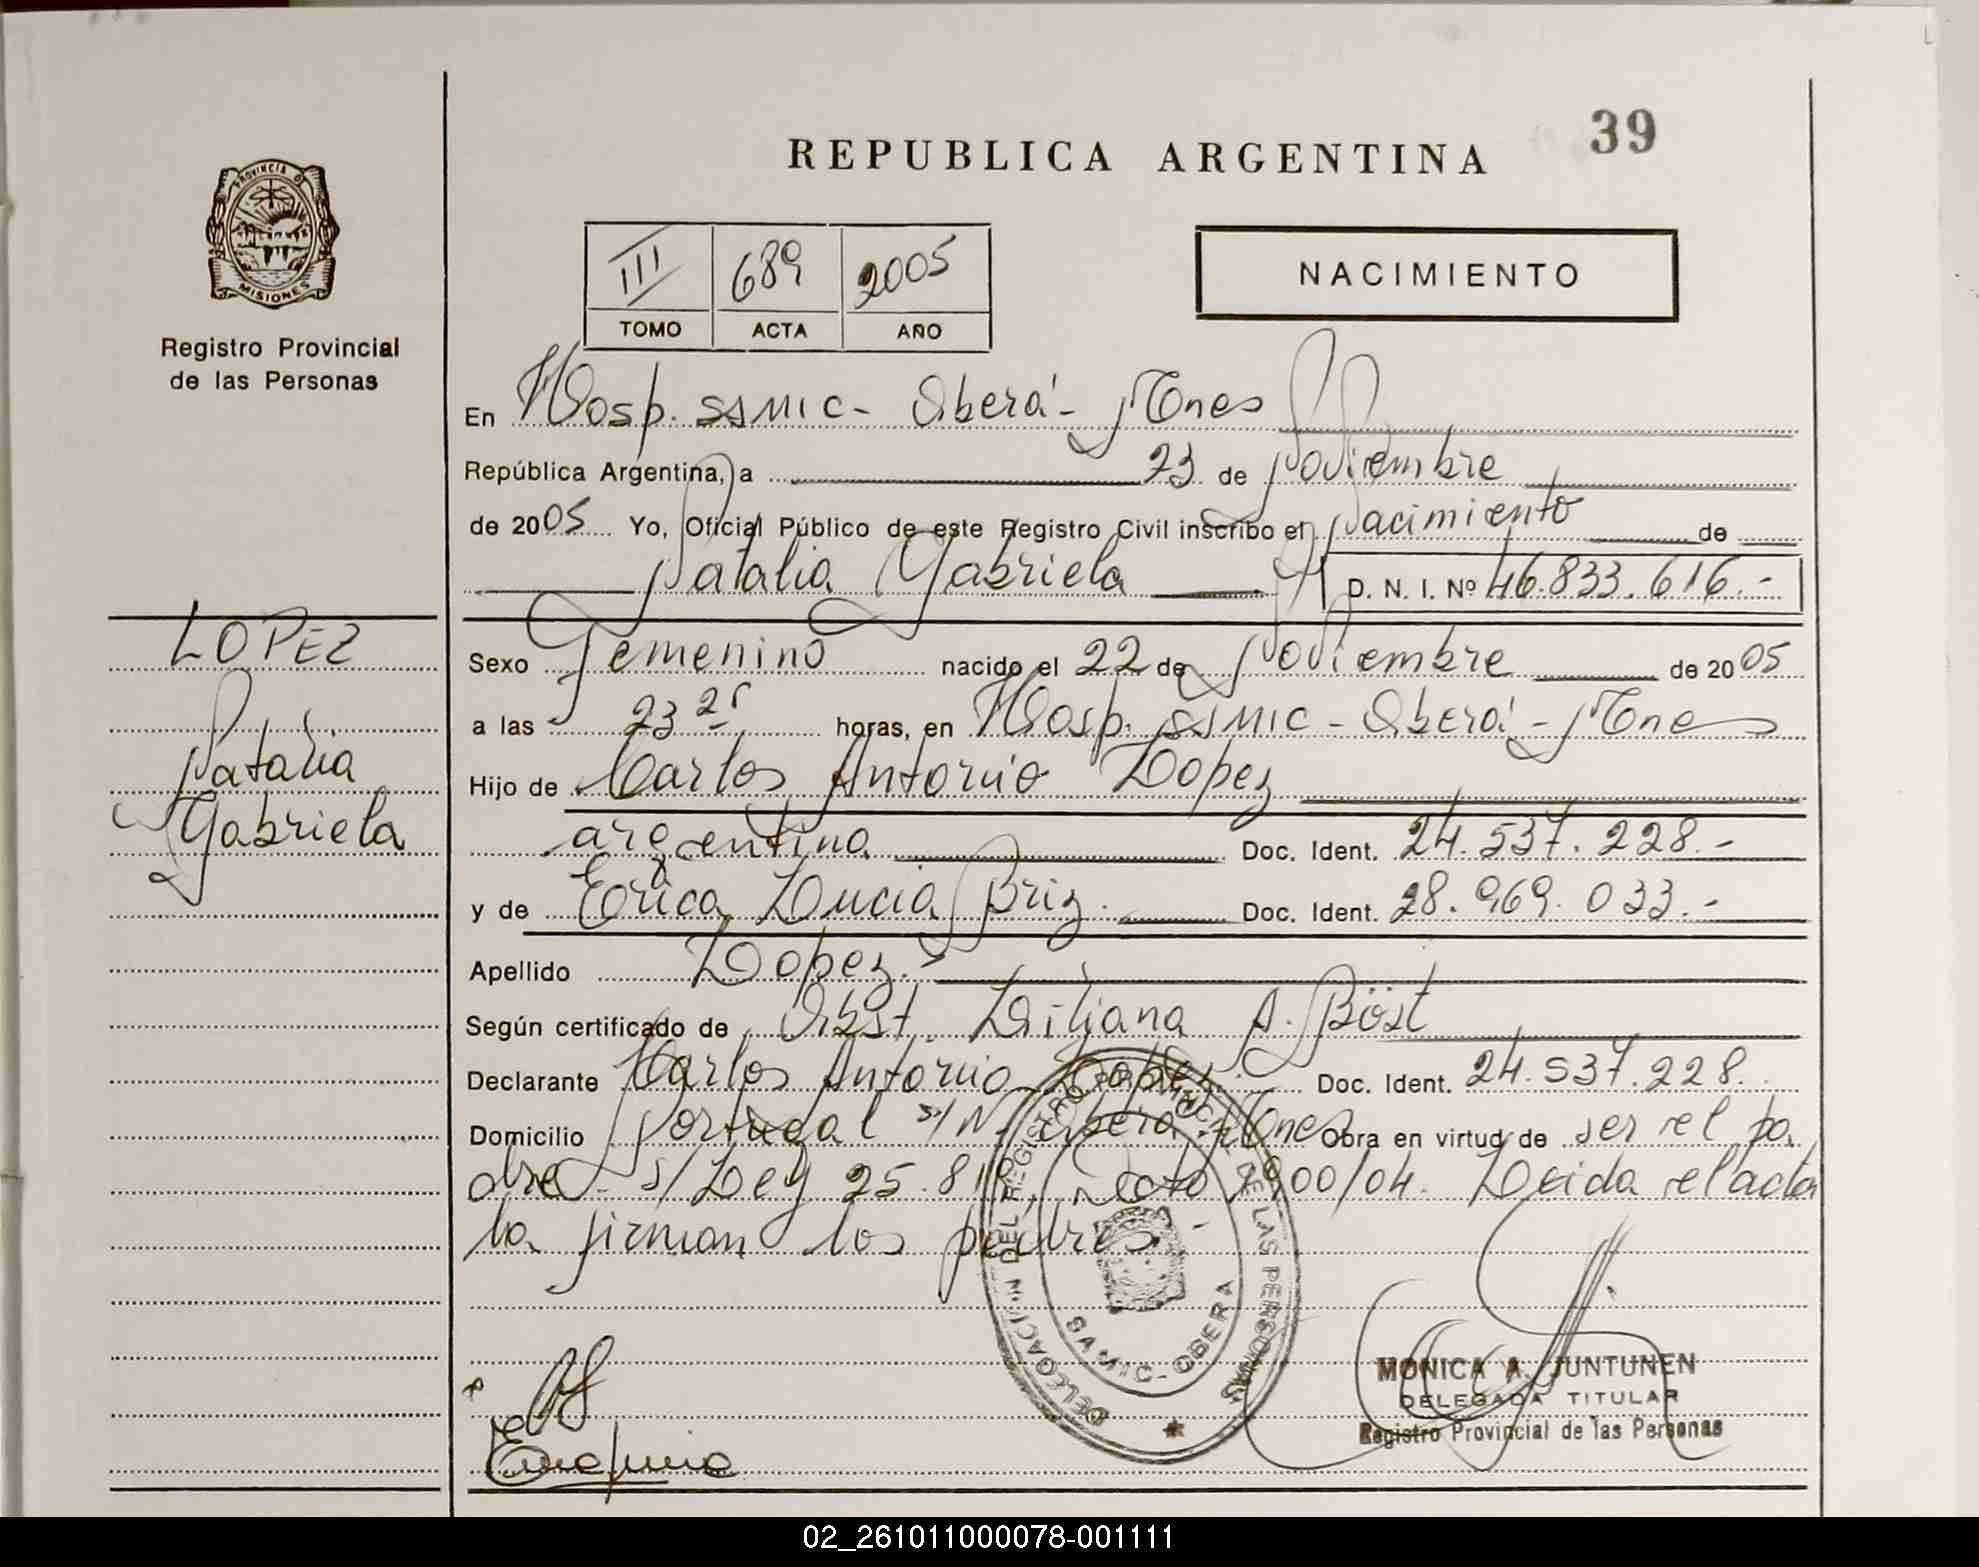 39
REPUBLICA ARGENTINA
PROVINCIA DE
MISIONES
Registro Provincial
de las Personas
III 689 2005
TOMO ACTA AÑO
NACIMIENTO
En Hosp. SSMIC - Oberá - Mnes
República Argentina, a 23 de Noviembre
de 2005 Yo, Oficial Público de este Registro Civil inscribo el Nacimiento de
Natalia Gabriela D. N. I. Nº 46.833.616.-
LOPEZ
Natalia
Gabriela
Sexo Femenino nacido el 22 de Noviembre de 2005
a las 23 25 horas, en Hosp. SSMIC - Oberá - Mnes
Hijo de Carlos Antonio Lopez
argentino Doc. Ident. 24.537.228.-
y de Erica Lucia Briz. Doc. Ident. 28.969.033.-
Apellido Lopez.-
Según certificado de Obst. Liliana A. Böst
Declarante Carlos Antonio Lopez Doc. Ident. 24.537.228.
Domicilio Portugal s/N Oberá Mnes Obra en virtud de ser el pa
dre - s/Ley 25.819, Dcto 900/04. Leida el acta
la firman los padres.-
DELEGACION DEL REGISTRO PROVINCIAL DE LAS PERSONAS
SAMIC - OBERA
MONICA A. JUNTUNEN
DELEGADA TITULAR
Registro Provincial de las Personas
02_261011000078-001111